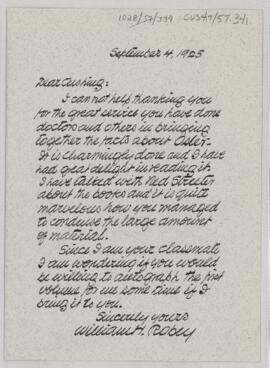 1028/57/339 CUS47/57.341
September 4, 1925
Dear Cushing:
I can not help thanking you
for the great service you have done
doctors and others in bringing
together the facts about Osler.
It is charmingly done and I have
had great delight in reading it.
I have talked with Ned Streeter
about the books and it is quite
marvelous how you managed
to condense the large amount
of material.
Since I am your classmate
I am wondering if you would
be willing to autograph the first
volume for me some time if I
bring it to you.
Sincerely yours
William H. Robey